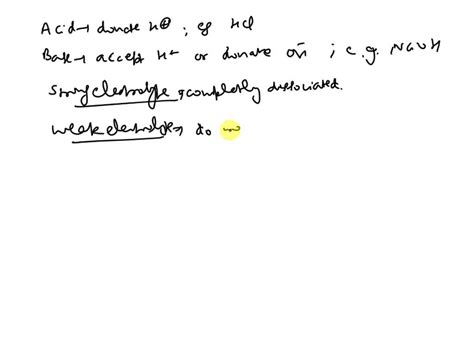 Acid → donate H⊕ ; eg HCl
Base → accept H+ or donate OH ; e.g. NaOH
Strong electrolyte → completely dissociated.
Weak electrolyte → do